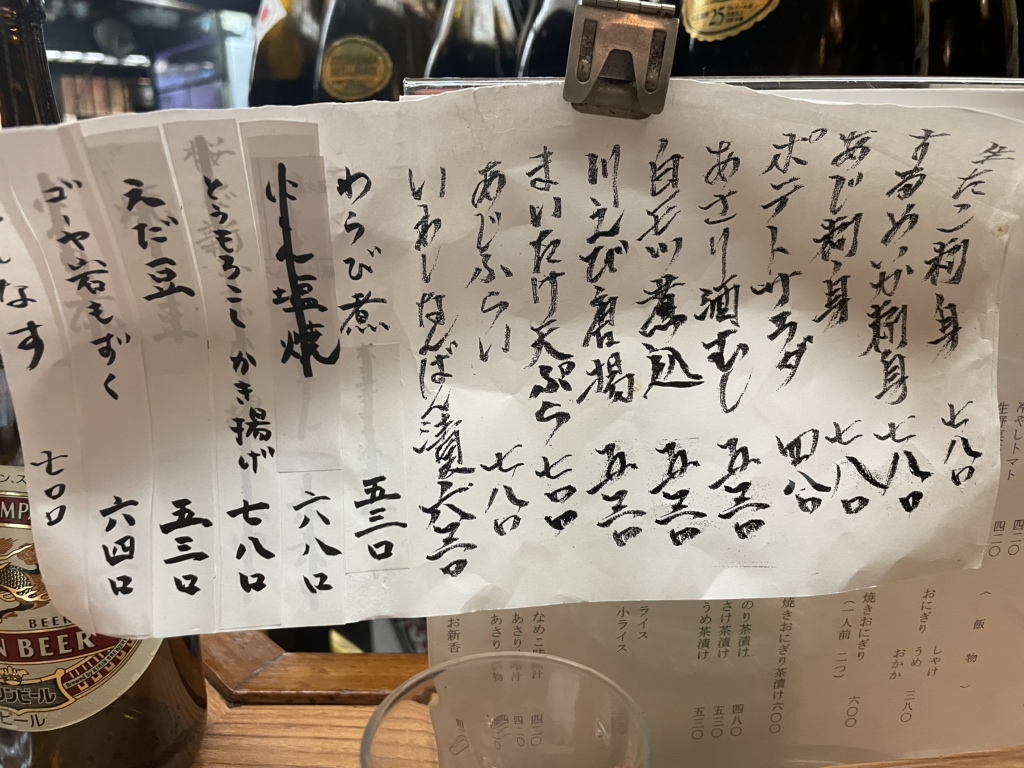 生たこ刺身 七八〇
するめいか刺身 七八〇
あじ刺身 七八〇
ポテトサラダ 四八〇
あさり酒むし 五三〇
白モツ煮込 五三〇
川えび唐揚 五三〇
まいたけ天ぷら 七三〇
あじふらい 七八〇
いわしなんばん漬 六三〇
わらび煮 五三〇
塩焼 六八〇
とうもろこしかき揚げ 七八〇
えだ豆 五三〇
ゴーヤ岩もずく 六四〇
なす 七〇〇
冷やしトマト 四二〇
四二〇
(飯物)
おにぎり しゃけ
うめ
おかか 三八〇
焼きおにぎり
(一人前 二つ) 六〇〇
焼きおにぎり茶漬け 六〇〇
のり茶漬け 四八〇
さけ茶漬け 五三〇
うめ茶漬け 五三〇
ライス
小ライス
なめこ汁 四二〇
あさり 汁 四二〇
あさり
お新香
BEER
N BEER
リンビール
ビール
25